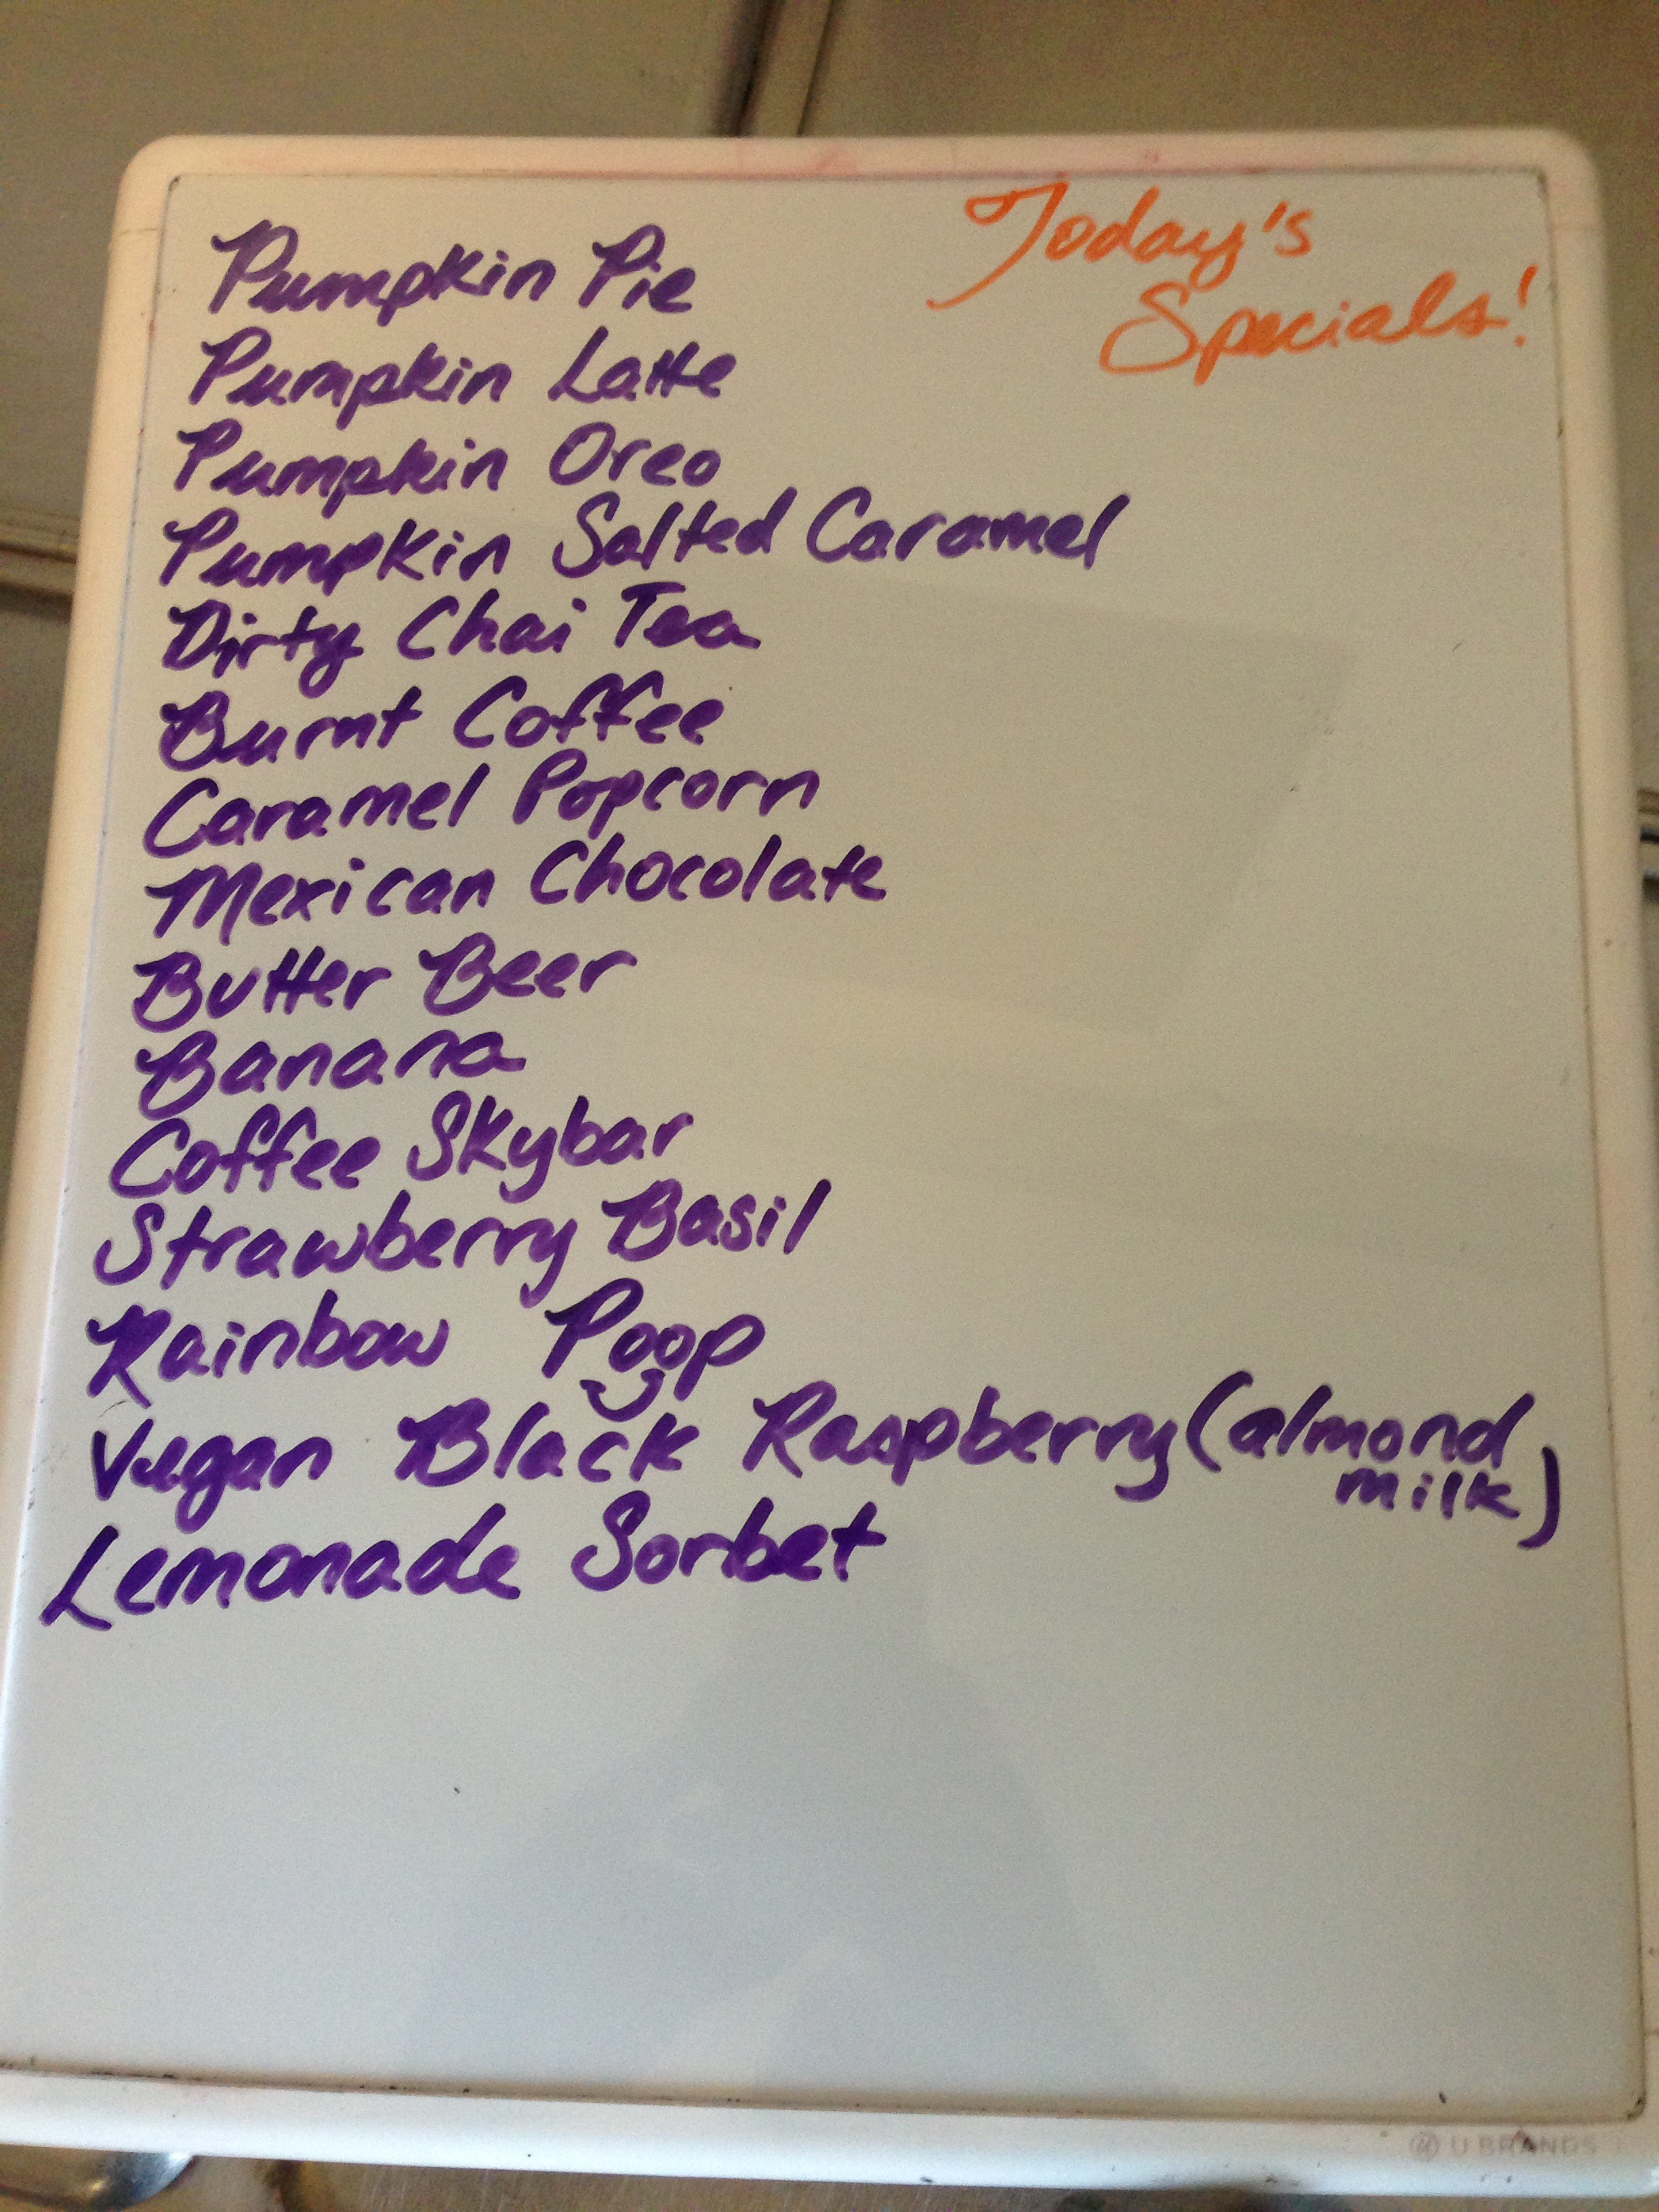 Today's
Specials!
Pumpkin Pie
Pumpkin Latte
Pumpkin Oreo
Pumpkin Salted Caramel
Dirty Chai Tea
Burnt Coffee
Caramel Popcorn
Mexican Chocolate
Butter Beer
Banana
Coffee Skybar
Strawberry Basil
Rainbow Poop
Vegan Black Raspberry (almond
milk)
Lemonade Sorbet
U BRANDS